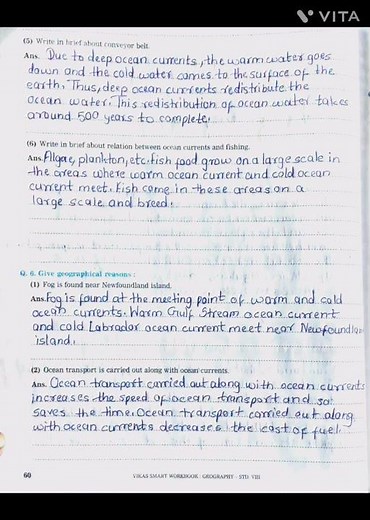 VITA
(5) Write in brief about conveyor belt.
Ans. Due to deep ocean currents, the warm water goes
down and the cold water comes to the surface of the
earth. Thus, deep ocean currents redistribute the
ocean water. This redistribution of ocean water takes
around 500 years to complete.
(6) Write in brief about relation between ocean currents and fishing.
Ans. Algae, plankton, etc. fish food grow on a large scale in
the areas where warm ocean current and cold ocean
current meet. Fish come in these areas on a
large scale and breed.
Q. 6. Give geographical reasons :
(1) Fog is found near Newfoundland island.
Ans. Fog is found at the meeting point of warm and cold
ocean currents. Warm Gulf Stream ocean current
and cold Labrador ocean current meet near Newfoundland
island.
(2) Ocean transport is carried out along with ocean currents.
Ans. Ocean transport carried out along with ocean currents
increases the speed of ocean transport and so
saves the time. Ocean transport carried out along
with ocean currents decreases the cost of fuel.
60
VIKAS SMART WORKBOOK : GEOGRAPHY - STD. VIII